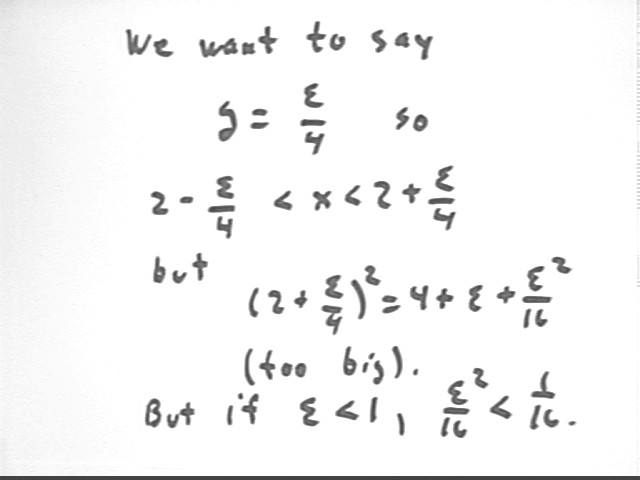 We want to say
δ = ε/4 so
2 - ε/4 < x < 2 + ε/4
but
(2 + ε/4)² = 4 + ε + ε²/16
(too big).
But if ε < 1, ε²/16 < 1/16.